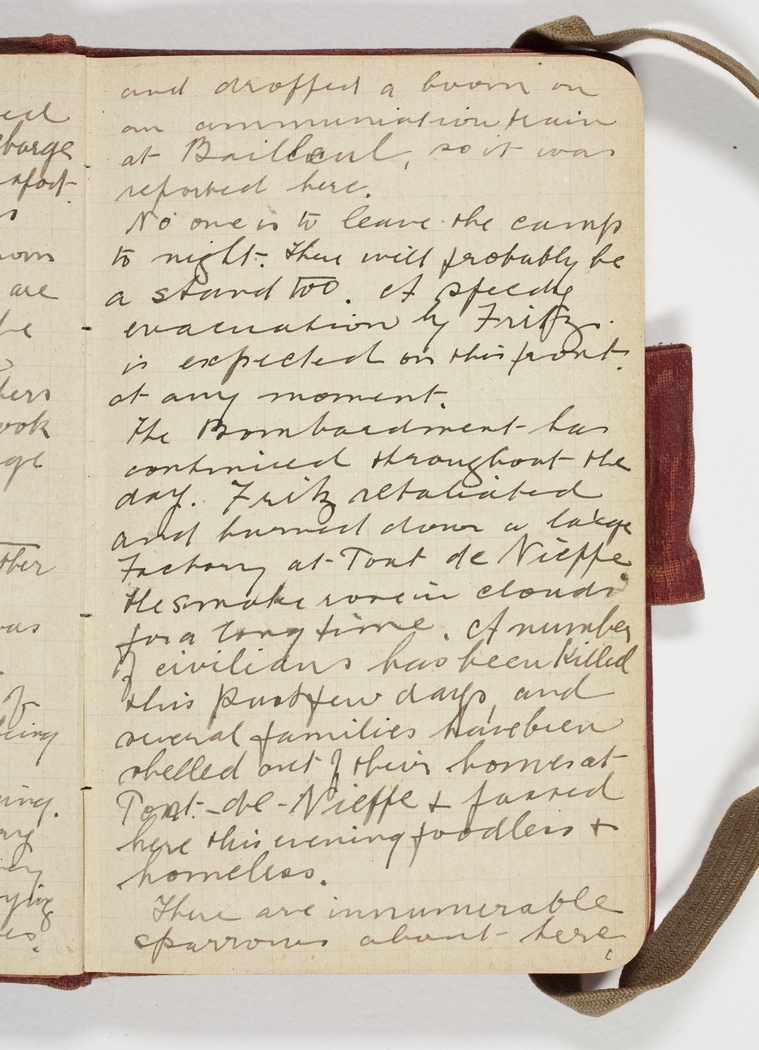 ed
charge
s
om
are
be
ters
ook
ge
ther
was
of
eing
ing.
ying
es.
and dropped a boom on
an ammuniation train
at Bailleul, so it was
reported here.
No one is to leave the camp
to night. There will probably be
a stand too. A speedy
evacuation by Fritz.
is expected on this front.
at any moment.
The Bombardment has
continued throughout the
day. Fritz retaliated
and burned down a large
Factory at Pont de Nieppe
the smoke rose in clouds
for a long time. A number
of civilians has been killed
this past few days, and
several families have been
shelled out of their homes at
Pont-de-Nieppe & passed
here this evening foodless &
homeless.
There are innumerable
sparrows about here